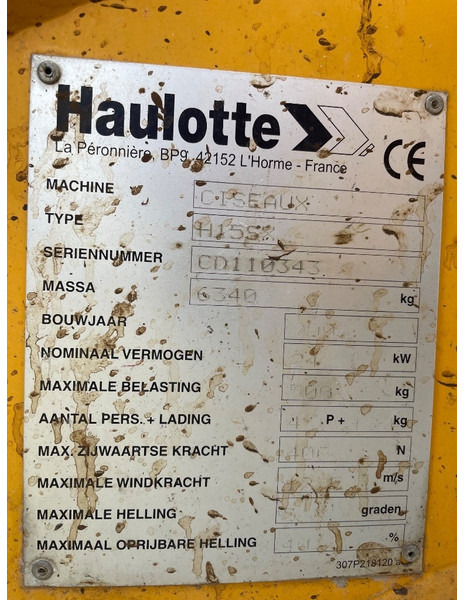 Haulotte
La Péronnière, BP9, 42152 L'Horme - France
CE
MACHINE CISEAUX
TYPE
SERIENNUMMER CD110343
MASSA 6340 kg
BOUWJAAR
NOMINAAL VERMOGEN kW
MAXIMALE BELASTING kg
AANTAL PERS. + LADING P + kg
MAX. ZIJWAARTSE KRACHT N
MAXIMALE WINDKRACHT m/s
MAXIMALE HELLING graden
MAXIMAAL OPRIJBARE HELLING %
307P218120 a